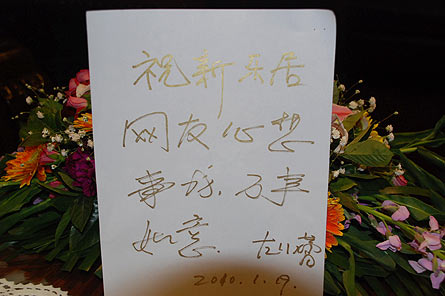 祝新乐居
网友心想
事成,万事
如意.
2010.1.9.